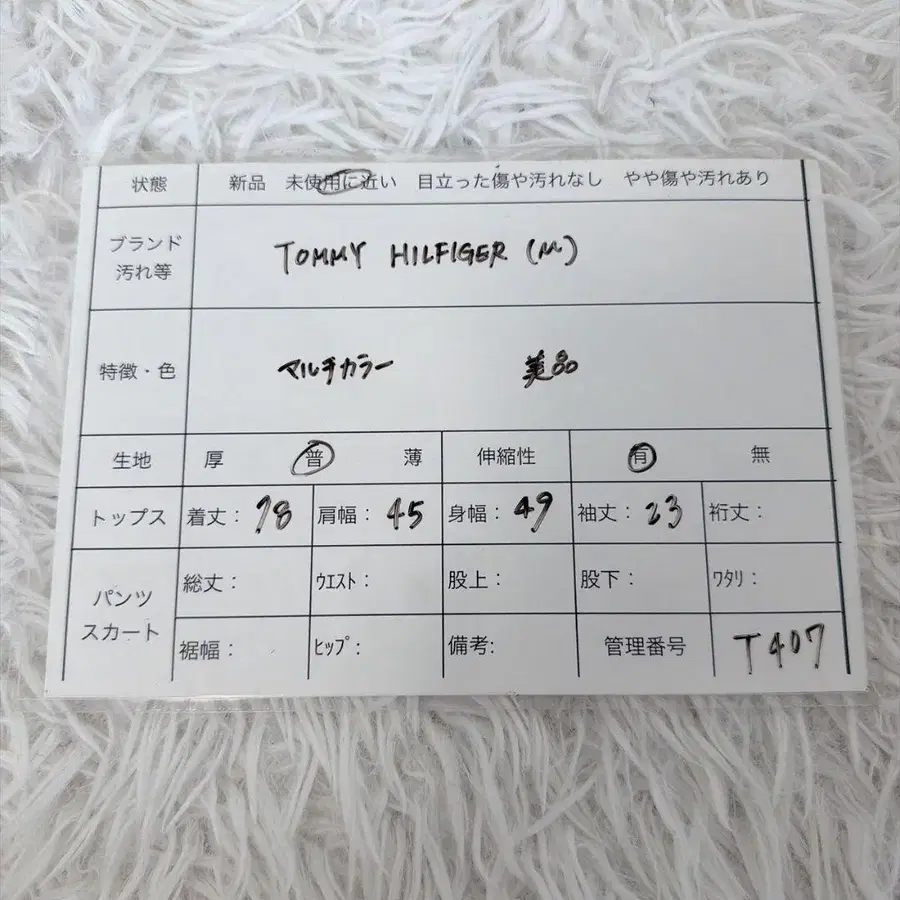 状態 新品 未使用に近い 目立った傷や汚れなし やや傷や汚れあり
ブランド
汚れ等 TOMMY HILFIGER (M)
特徴・色 マルチカラー 美品
生地 厚 普 薄 伸縮性 有 無
トップス 着丈: 78 肩幅: 45 身幅: 49 袖丈: 23 裄丈:
パンツ
スカート
総丈: ｳｴｽﾄ: 股上: 股下: ﾜﾀﾘ:
裾幅: ﾋｯﾌﾟ: 備考: 管理番号 T407